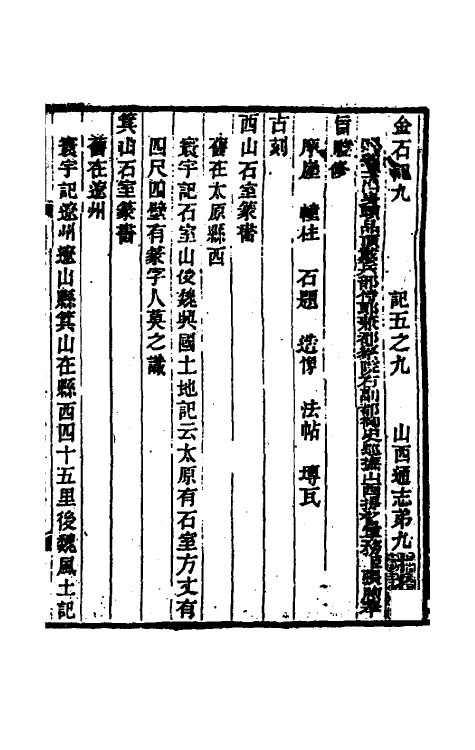 金石記九 記五之九 山西通志弟九十
旨監修
摩崖 幢柱 石題 造像 法帖 塼瓦
古刻
西山石室篆書
舊在太原縣西
寰宇記石室山後魏興國土地記云太原有石室方丈有
四尺四壁有篆字人莫之識
箕山石室篆書
舊在遼州
寰宇記遼州遼山縣箕山在縣西四十五里後魏風土記